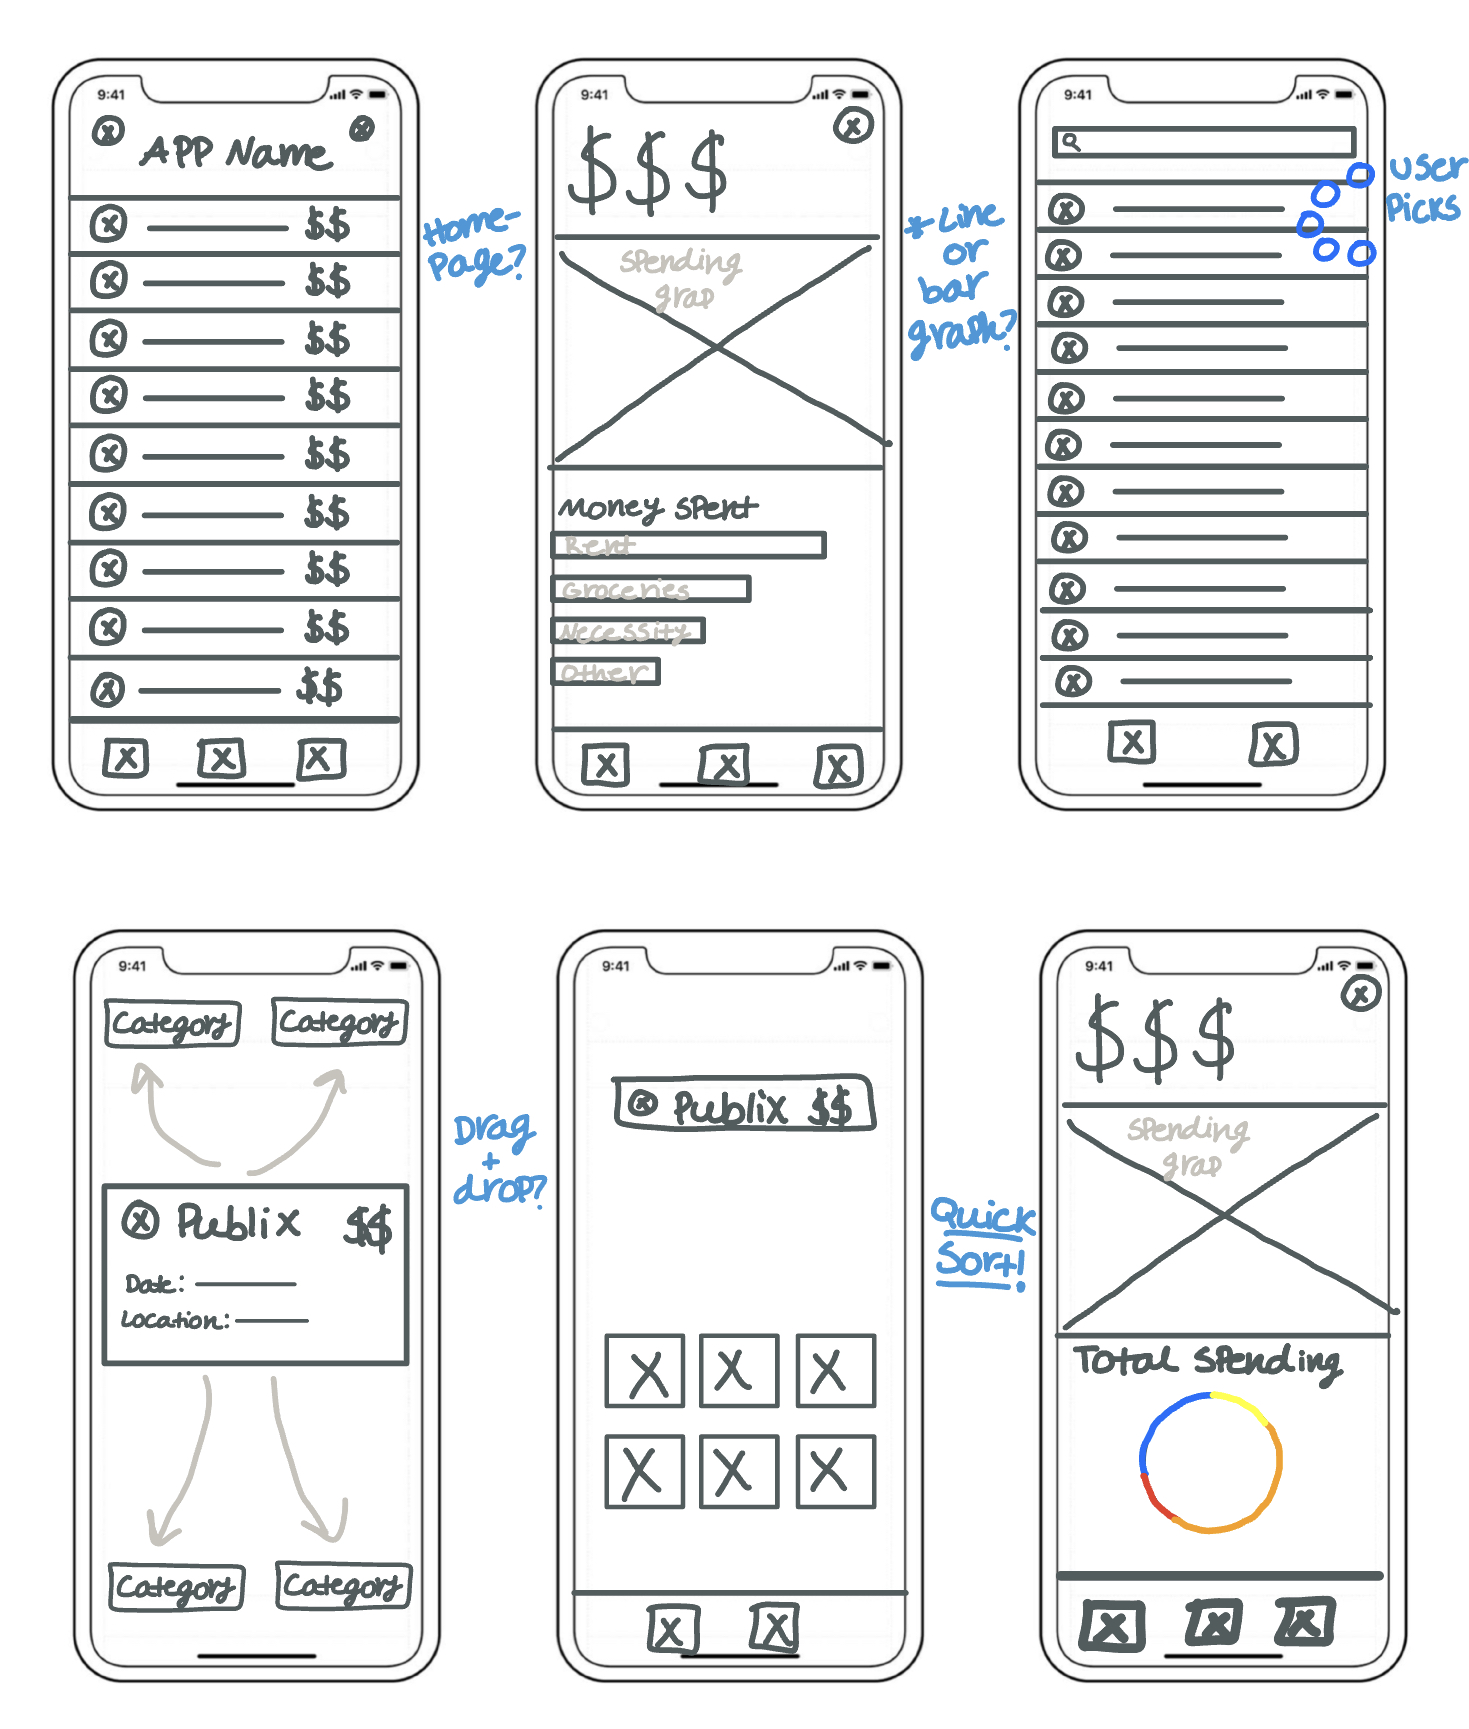 9:41
APP Name
$$
$$
$$
$$
$$
$$
$$
$$
$$
Home-
Page?
9:41
$$$
Spending
grap
Money spent
Rent
Groceries
Necessity
Other
*Line
or
bar
graph?
9:41
user
Picks
9:41
Category Category
Publix $$
Date:
Location:
Category Category
Drag
+
drop?
9:41
Publix $$
Quick
Sort!
9:41
$$$
Spending
grap
Total Spending